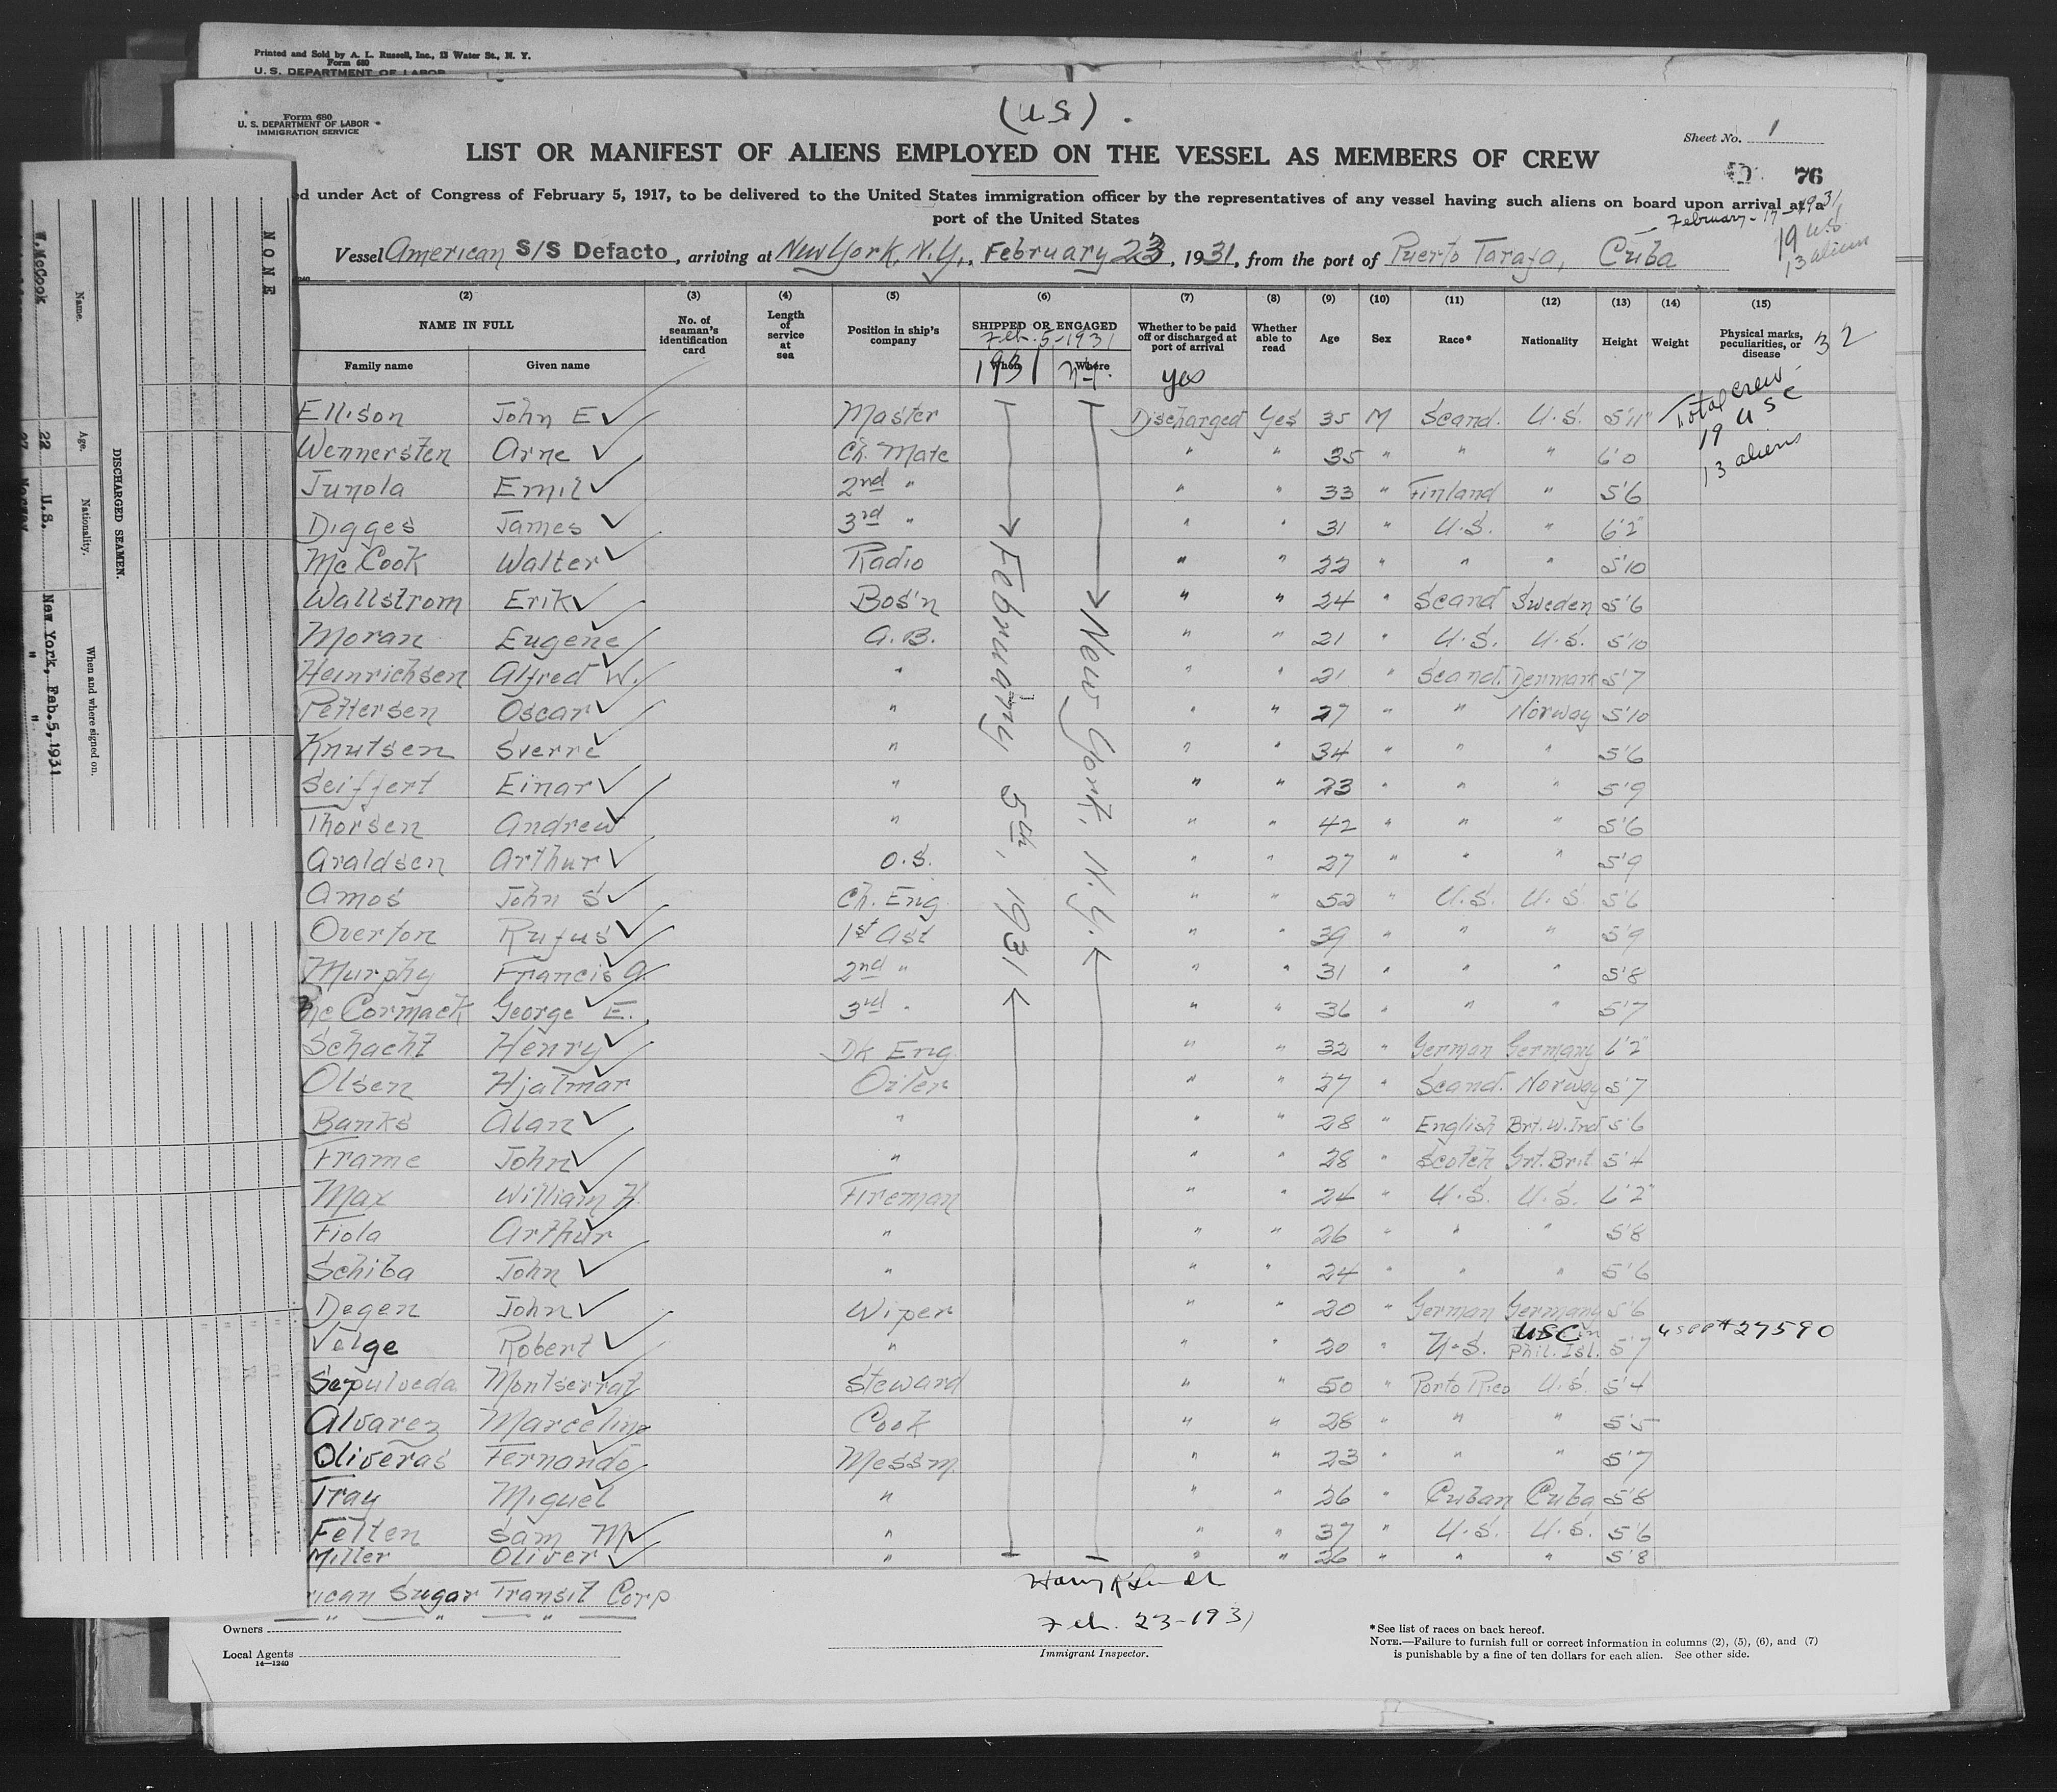 Printed and Sold by A. L. Russell, Inc., 13 Water St., N. Y.
Form 680
U. S. DEPARTMENT OF LABOR
(US).
Form 680
U. S. DEPARTMENT OF LABOR
IMMIGRATION SERVICE
Sheet No. 1
LIST OR MANIFEST OF ALIENS EMPLOYED ON THE VESSEL AS MEMBERS OF CREW
76
ed under Act of Congress of February 5, 1917, to be delivered to the United States immigration officer by the representatives of any vessel having such aliens on board upon arrival at a
port of the United States
February-17-1931
19 U.S.
13 aliens
Vessel American S/S Defacto, arriving at New York, N.Y., February 23, 1931, from the port of Puerto Tarafa, Cuba
(2) (3) (4) (5) (6) (7) (8) (9) (10) (11) (12) (13) (14) (15)
NAME IN FULL No. of seaman's identification card Length of service at sea Position in ship's company SHIPPED OR ENGAGED Whether to be paid off or discharged at port of arrival Whether able to read Age Sex Race* Nationality Height Weight Physical marks, peculiarities, or disease 32
Feb. 5-1931
Family name Given name When Where
1931 N.Y. yes
Total crew-
19 USC
13 aliens
February 5th, 1931
New York, N.Y.
Ellison John E ✓ Master Discharged Yes 35 M Scand. U.S. 5'11"
Wennersten Arne ✓ Ch. Mate " " 35 " " " 6'0
Junola Emil ✓ 2nd " " " 33 " Finland " 5'6
Digges James ✓ 3rd " " " 31 " U.S. " 6'2"
McCook Walter ✓ Radio " " 22 " " " 5'10
Wallstrom Erik ✓ Bos'n " " 24 " Scand Sweden 5'6
Moran Eugene ✓ A.B. " " 21 " U.S. U.S. 5'10
Heinrichsen Alfred W. ✓ " " " 21 " Scand. Denmark 5'7
Pettersen Oscar ✓ " " " 27 " " Norway 5'10
Knutsen Sverre ✓ " " " 34 " " " 5'6
Seiffert Einar ✓ " " " 23 " " " 5'9
Thorsen Andrew ✓ " " " 42 " " " 5'6
Araldsen Arthur ✓ O.S. " " 27 " " " 5'9
Amos John S ✓ Ch. Eng " " 52 " U.S. U.S. 5'6
Overton Rufus ✓ 1st Ast " " 39 " " " 5'9
Murphy Francis A. ✓ 2nd " " " 31 " " " 5'8
McCormack George E. ✓ 3rd " " " 36 " " " 5'7
Schacht Henry ✓ Dk Eng. " " 32 " German Germany 6'2"
Olsen Hjalmar ✓ Oiler " " 27 " Scand. Norway 5'7
Banks Alan ✓ " " " 28 " English Brt. W. Ind 5'6
Frame John ✓ " " " 28 " Scotch Grt. Brit. 5'4
Max William H. ✓ Fireman " " 24 " U.S. U.S. 6'2"
Fiola Arthur ✓ " " " 26 " " " 5'8
Schiba John ✓ " " " 24 " " " 5'6
Degen John ✓ Wiper " " 20 " German Germany 5'6
Velge Robert ✓ " " " 20 " U.S. USC Phil. Isl. 5'7 #27590
Sepulveda Montserrat ✓ Steward " " 50 " Porto Rico U.S. 5'4
Alvarez Marcelino ✓ Cook " " 28 " " " 5'5
Oliveras Fernando ✓ Messm. " " 23 " " " 5'7
Tray Miguel ✓ " " " 26 " Cuban Cuba 5'8
Felten Sam M ✓ " " " 37 " U.S. U.S. 5'6
Miller Oliver ✓ " " " 26 " " " 5'8
rican Sugar Transit Corp
" " " "
Feb. 23-1931
Owners
Local Agents
14—1240
Immigrant Inspector.
*See list of races on back hereof.
NOTE.—Failure to furnish full or correct information in columns (2), (5), (6), and (7)
is punishable by a fine of ten dollars for each alien. See other side.
NONE
DISCHARGED SEAMEN.
Name. Age. Nationality. When and where signed on.
W. McCook 22 U.S. New York, Feb. 5, 1931